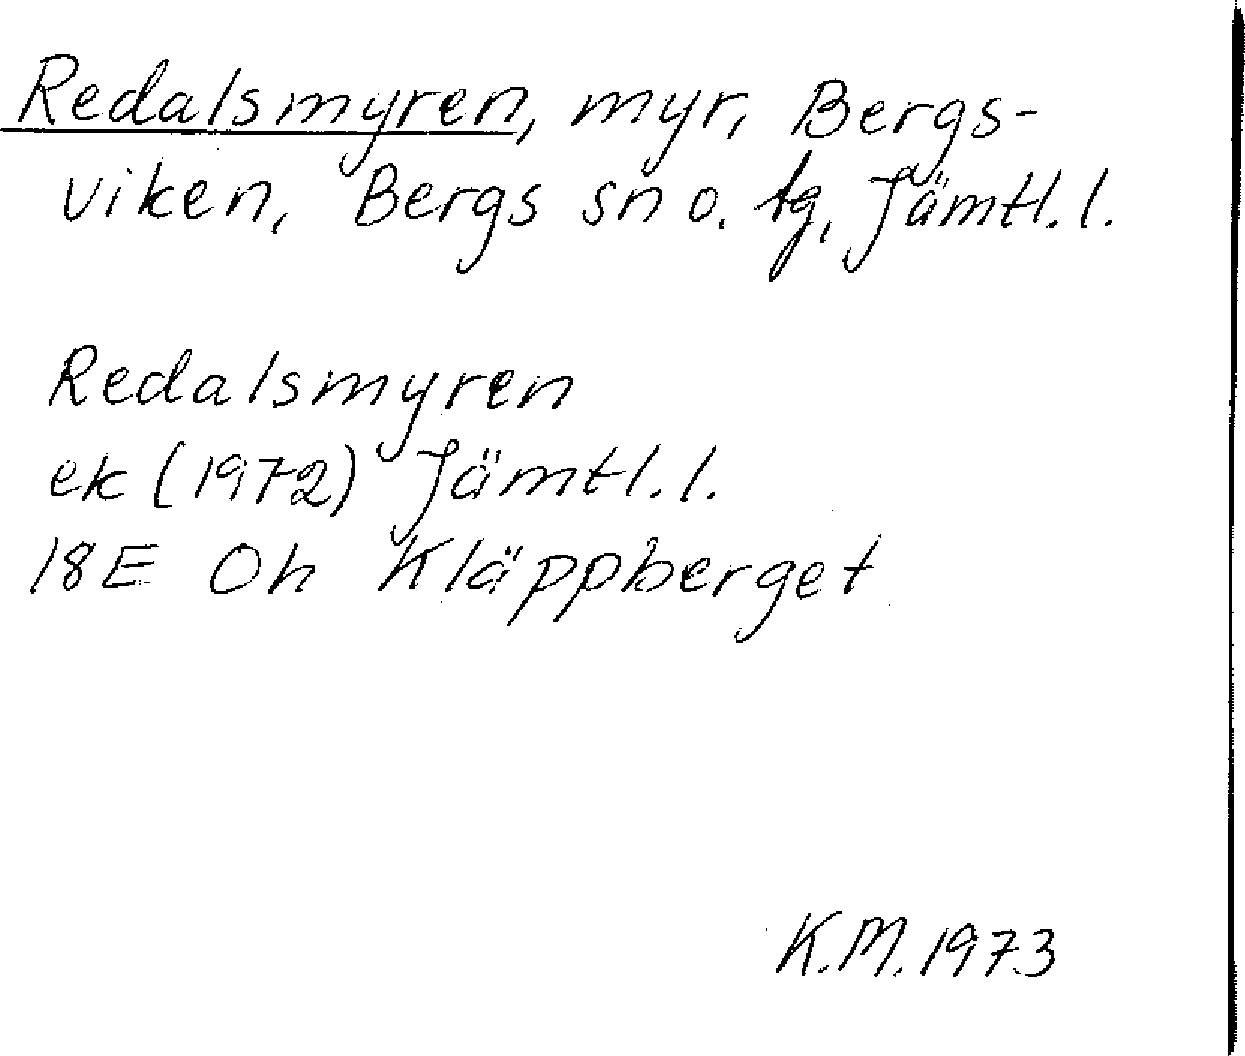 Redalsmyren, myr, Bergs-
viken, Bergs sn o. tg, Jämtl. l.
Redalsmyren
ek (1972) Jämtl. l.
18E Oh Kläppberget
K.M. 1973